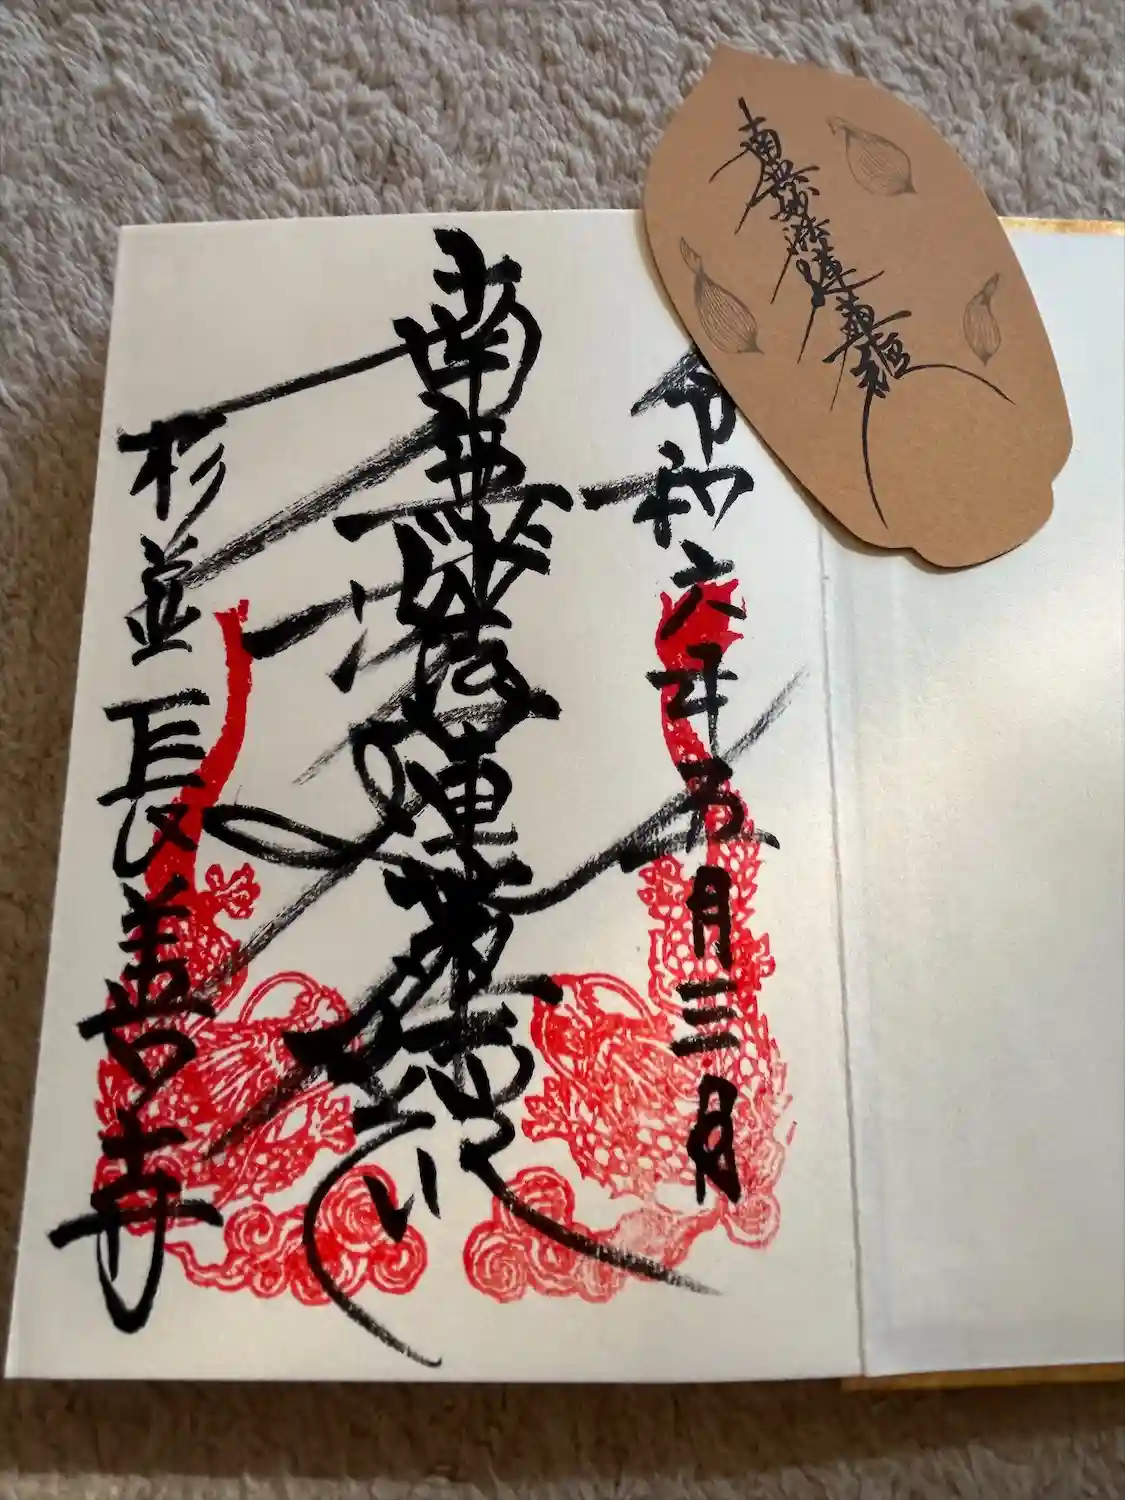 南無妙法蓮華経
令和六年五月三日
南無妙法蓮華経
杉並長善寺